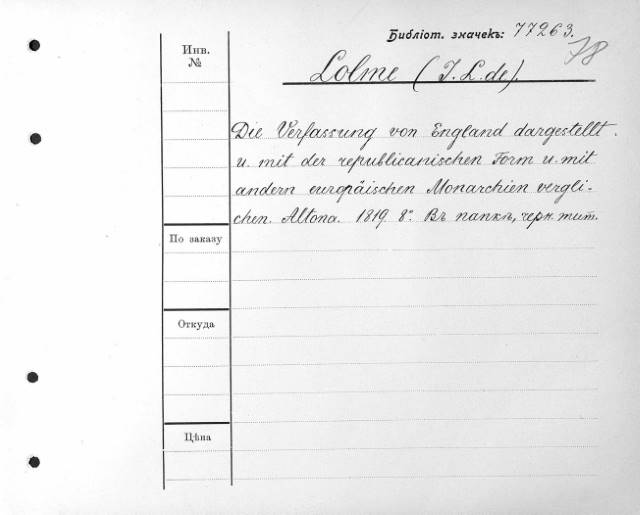 Библіот. значекъ: 77263.
78
Инв.
№
Lolme (J. L. de).
Die Verfassung von England dargestellt
u. mit der republicanischen Form u. mit
andern europäischen Monarchien vergli-
chen. Altona. 1819. 8°. Въ папкѣ, черн. тит.
По заказу
Откуда
Цѣна